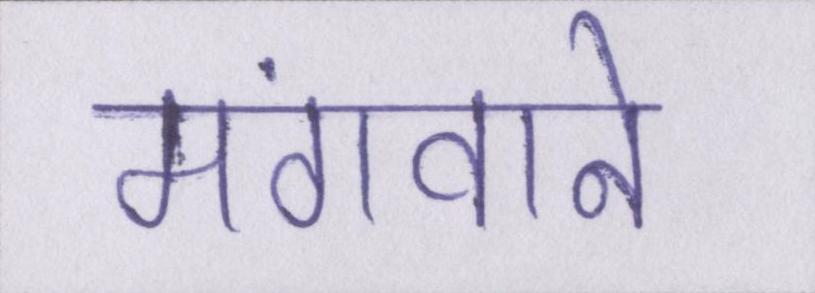 मंगवाने